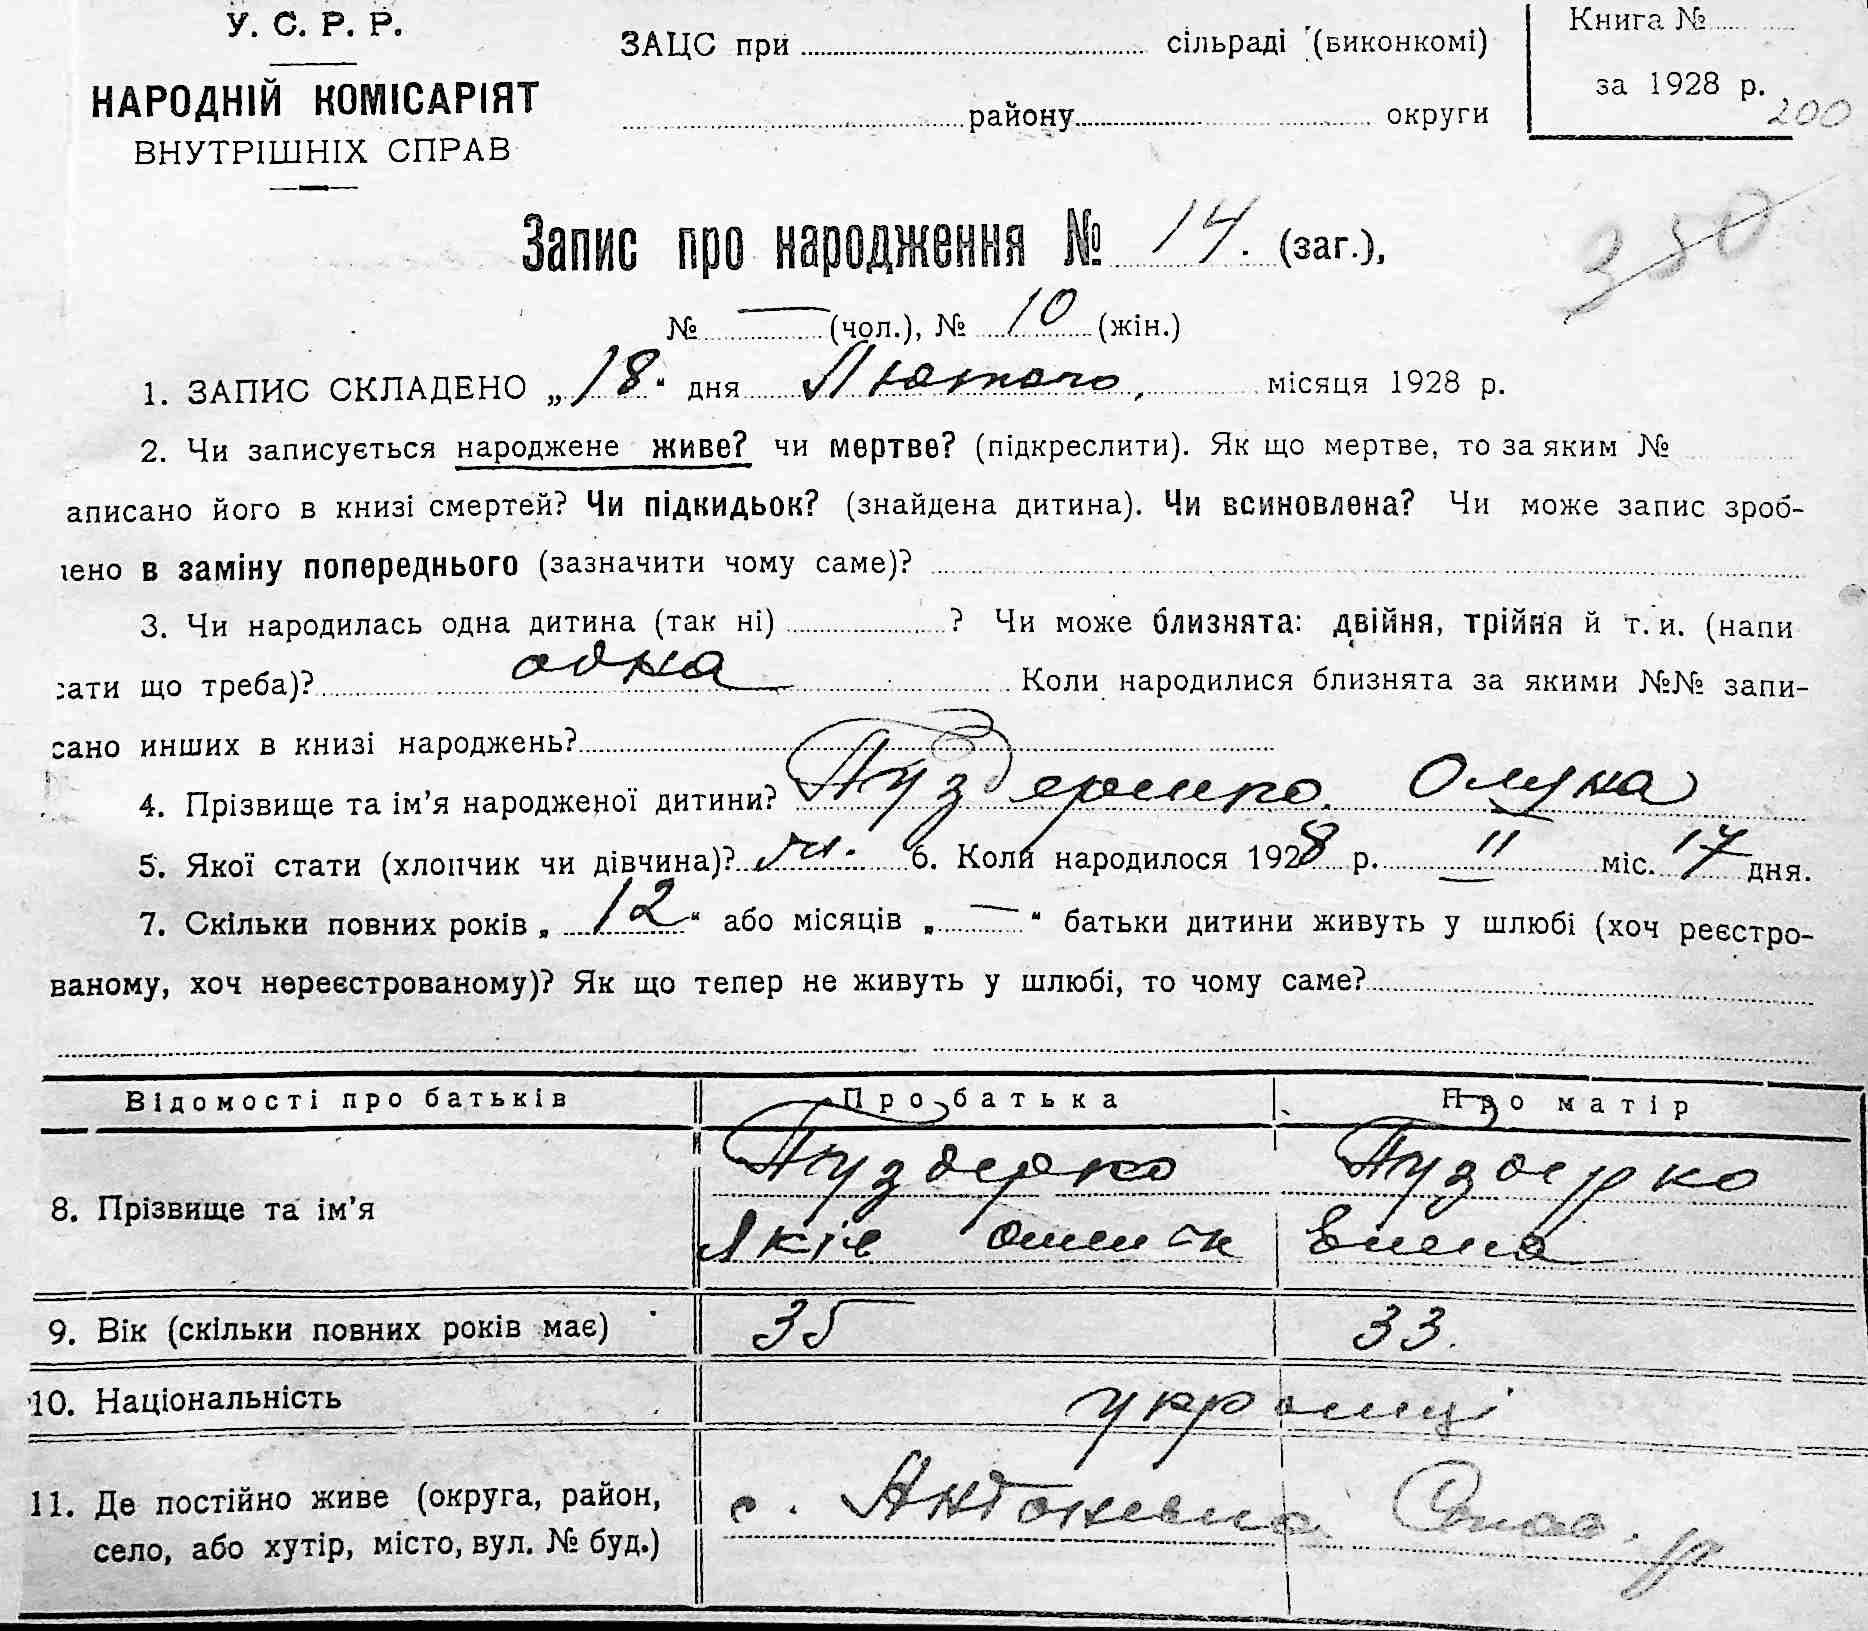 У. С. Р. Р.
НАРОДНІЙ КОМІСАРІЯТ
ВНУТРІШНІХ СПРАВ
ЗАЦС при сільраді (виконкомі)
району округи
Книга №
за 1928 р.
200
350
Запис про народження № 14. (заг.),
№ — (чол.), № 10 (жін.)
1. ЗАПИС СКЛАДЕНО „18“ дня Лютого, місяця 1928 р.
2. Чи записується народжене живе? чи мертве? (підкреслити). Як що мертве, то за яким №
аписано його в книзі смертей? Чи підкидьок? (знайдена дитина). Чи всиновлена? Чи може запис зроб-
лено в заміну попереднього (зазначити чому саме)?
3. Чи народилась одна дитина (так ні) ? Чи може близнята: двійня, трійня й т. и. (напи
сати що треба)? одна Коли народилися близнята за якими №№ запи-
сано инших в книзі народжень?
4. Прізвище та ім’я народженої дитини?
5. Якої стати (хлопчик чи дівчина)? 6. Коли народилося 1928 р. II міс. 17 дня.
7. Скільки повних років „12“ або місяців „—“ батьки дитини живуть у шлюбі (хоч реєстро-
ваному, хоч нереєстрованому)? Як що тепер не живуть у шлюбі, то чому саме?
Відомості про батьків Про батька Про матір
8. Прізвище та ім’я Пуздерко Пуздерко
Яків
9. Вік (скільки повних років має) 35 33.
10. Національність українці
11. Де постійно живе (округа, район,
село, або хутір, місто, вул. № буд.) с.